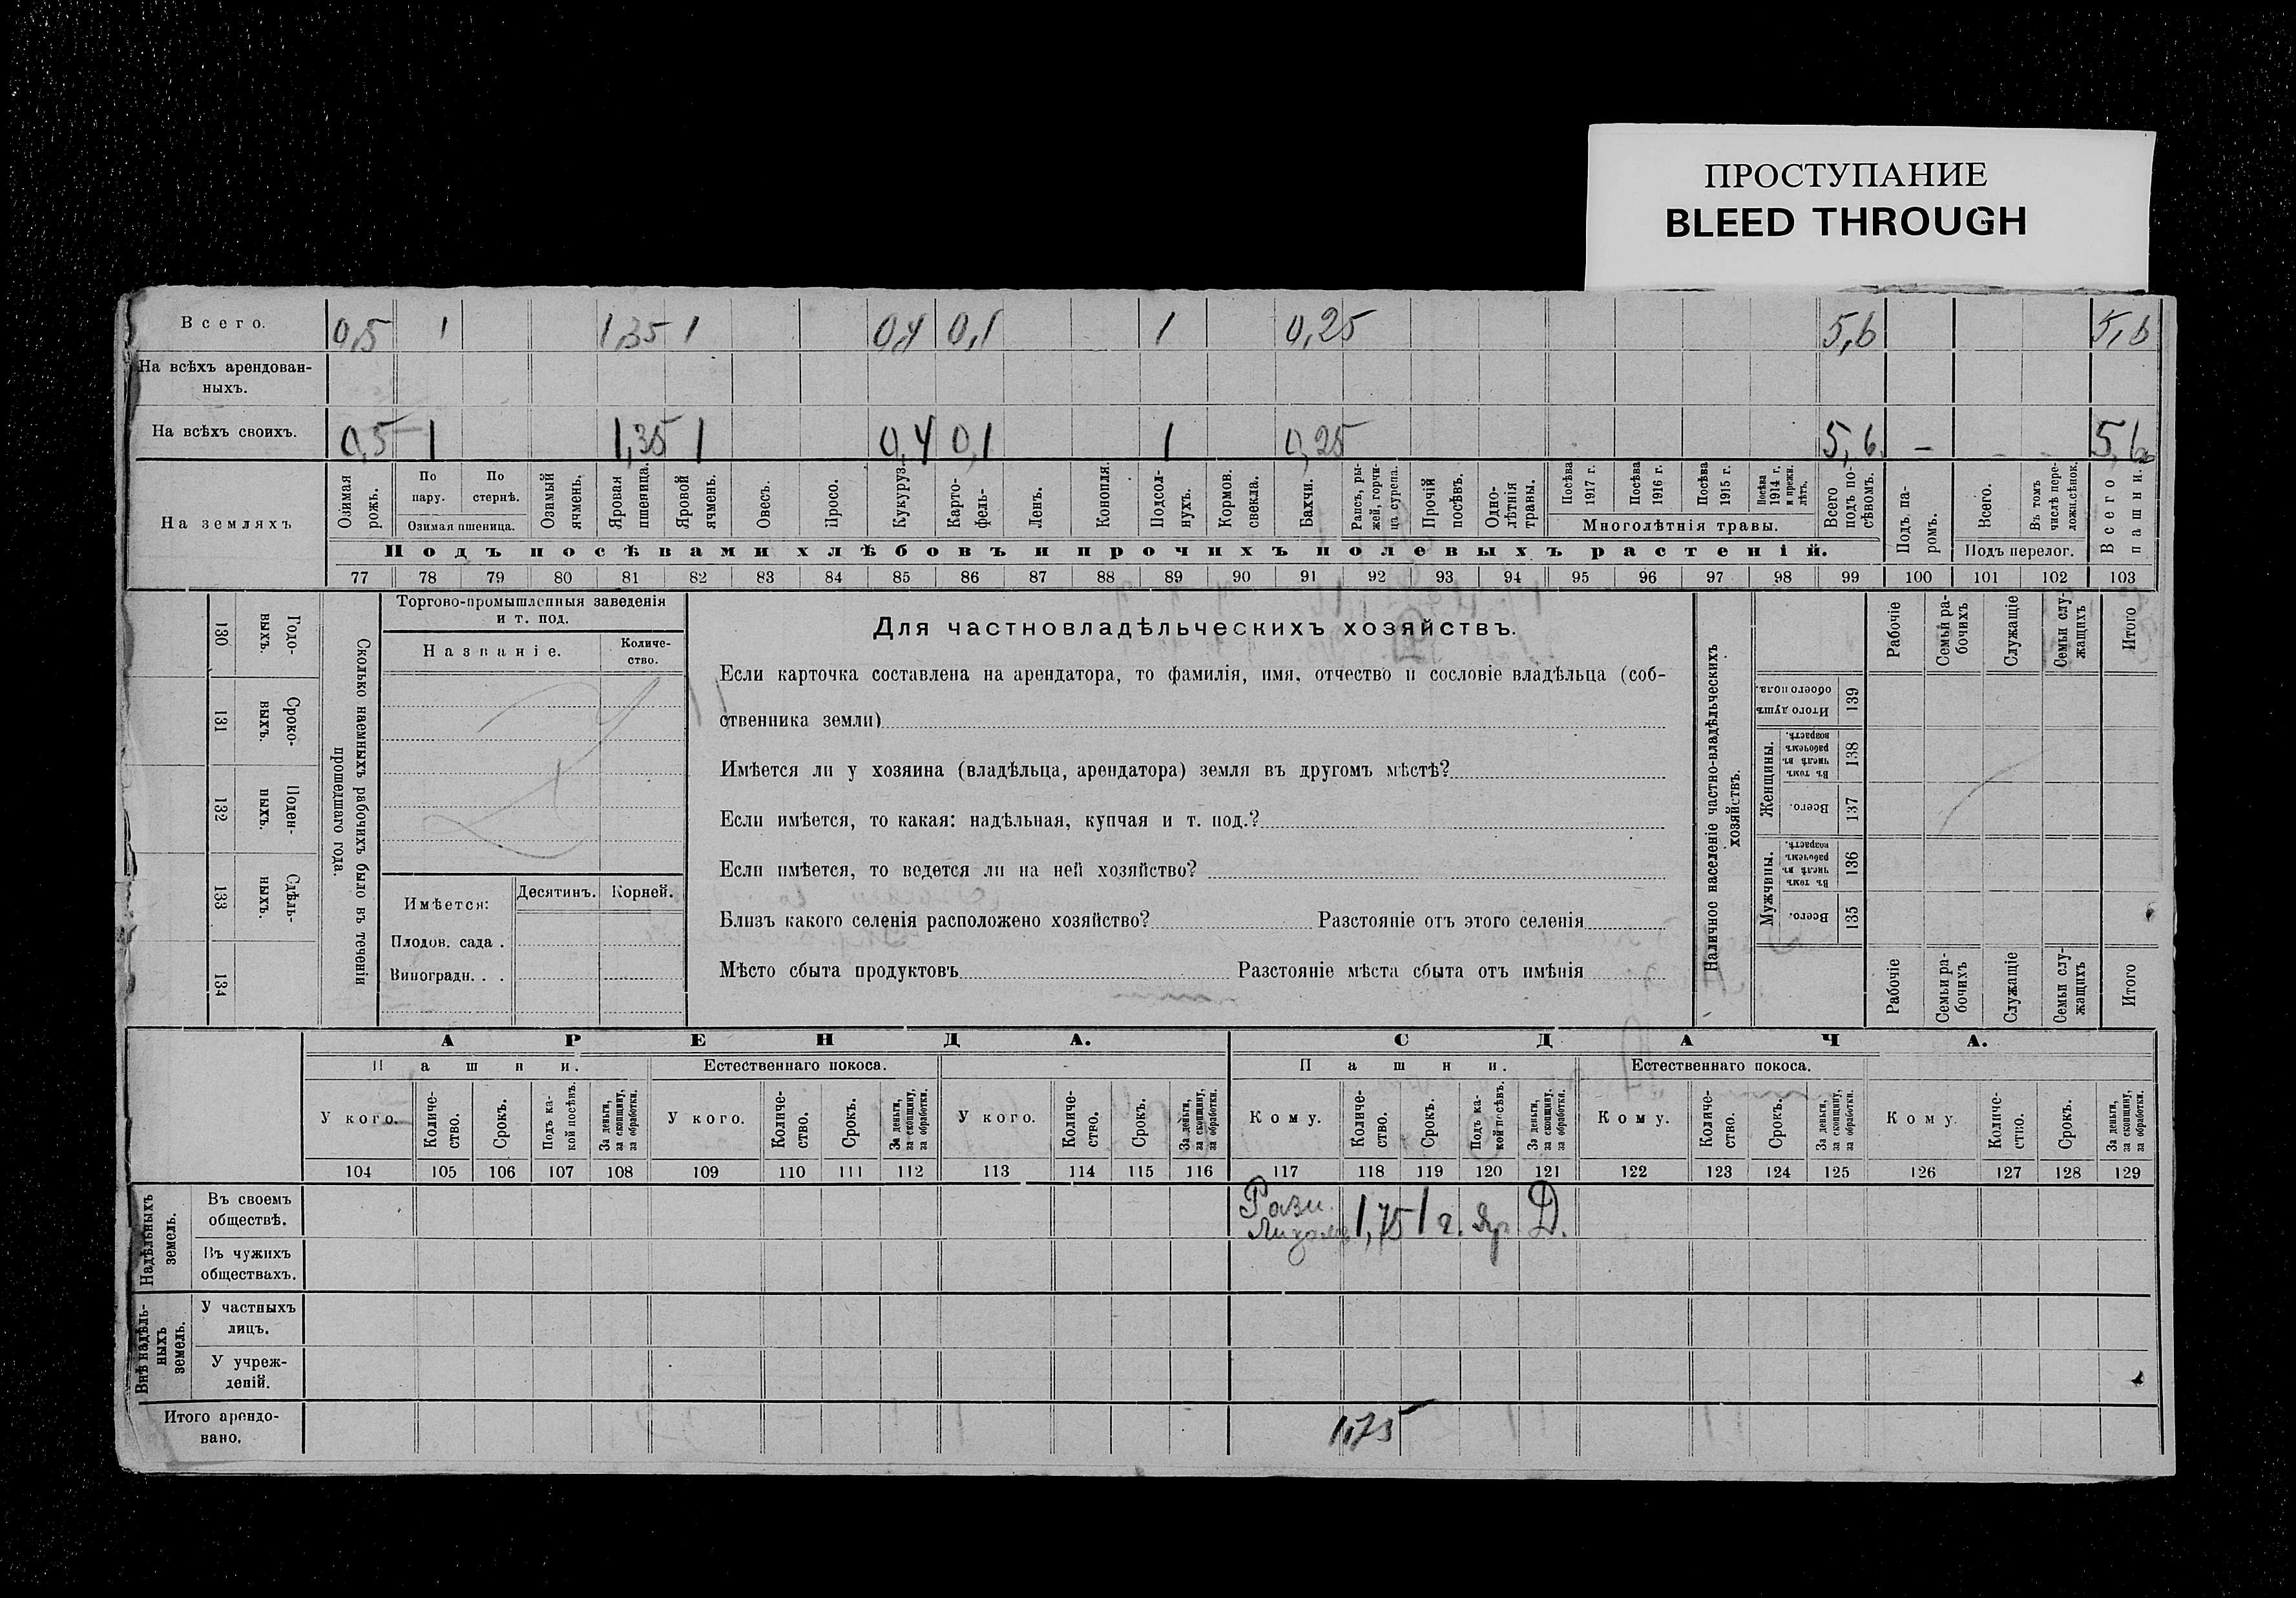 ПРОСТУПАНИЕ
BLEED THROUGH
Всего. 0,5 1 1,35 1 0,4 0,1 1 0,25 5,6 5,6
На всѣхъ арендован-
ныхъ.
На всѣхъ своихъ. 0,5 1 1,35 1 0,4 0,1 1 0,25 5,6 - 5,6
На земляхъ
Озимая рожь.
По пару.
По стернѣ.
Озимая пшеница.
Озимый ячмень.
Яровая пшеница.
Яровой ячмень.
Овесъ.
Просо.
Кукуруз.
Карто-
фель-
Ленъ.
Конопля.
Подсол-
нухъ.
Кормов.
свекла.
Бахчи.
Рапсъ, ры-
жей, горчи-
ца сурепа.
Прочій
посѣвъ.
Одно-
лѣтнія
травы.
Посѣва
1917 г.
Посѣва
1916 г.
Посѣва
1915 г.
Посѣва
1914 г.
и прежн.
лѣтъ.
Многолѣтнія травы.
Всего
подъ по-
сѣвомъ.
Подъ па-
ромъ.
Всего.
Въ томъ
числѣ пере-
ложн.сѣнок.
Подъ перелог.
Всего
пашни.
Подъ посѣвами хлѣбовъ и прочихъ полевыхъ растеній.
77 78 79 80 81 82 83 84 85 86 87 88 89 90 91 92 93 94 95 96 97 98 99 100 101 102 103
Сколько наемныхъ рабочихъ было въ теченіи
прошедшаго года.
Годо-
выхъ.
130
Сроко-
выхъ.
131
Поден-
ныхъ.
132
Сдѣль-
ныхъ.
133
134
Торгово-промышленныя заведенія
и т. под.
Названіе.
Количе-
ство.
Имѣется:
Десятинъ.
Корней.
Плодов. сада .
Виноградн. . .
Для частновладѣльческихъ хозяйствъ.
Если карточка составлена на арендатора, то фамилія, имя, отчество и сословіе владѣльца (соб-
ственника земли)
Имѣется ли у хозяина (владѣльца, арендатора) земля въ другомъ мѣстѣ?
Если имѣется, то какая: надѣльная, купчая и т. под.?
Если имѣется, то ведется ли на ней хозяйство?
Близъ какого селенія расположено хозяйство? Разстояніе отъ этого селенія
Мѣсто сбыта продуктовъ Разстояніе мѣста сбыта отъ имѣнія
Наличное населеніе частно-владѣльческихъ
хозяйствъ.
Рабочіе
Семьи ра-
бочихъ
Служащіе
Семьи слу-
жащихъ
Итого
Итого душъ
обоего пола.
139
Женщины.
Въ томъ
числѣ въ
рабочемъ
возрастѣ.
138
Всего.
137
Мужчины.
Въ томъ
числѣ въ
рабочемъ
возрастѣ.
136
Всего.
135
Рабочіе
Семьи ра-
бочихъ
Служащіе
Семьи слу-
жащихъ
Итого
АРЕНДА. СДАЧА.
Пашни. Естественнаго покоса. Пашни. Естественнаго покоса.
У кого.
Количе-
ство.
Срокъ.
Подъ ка-
кой посѣвъ.
За деньги,
за скопщину,
за обработки.
У кого.
Количе-
ство.
Срокъ.
За деньги,
за скопщину,
за обработки.
У кого.
Количе-
ство.
Срокъ.
За деньги,
за скопщину,
за обработки.
Кому.
Количе-
ство.
Срокъ.
Подъ ка-
кой посѣвъ.
За деньги,
за скопщину,
за обработки.
Кому.
Количе-
ство.
Срокъ.
За деньги,
за скопщину,
за обработки.
Кому.
Количе-
ство.
Срокъ.
За деньги,
за скопщину,
за обработки.
104 105 106 107 108 109 110 111 112 113 114 115 116 117 118 119 120 121 122 123 124 125 126 127 128 129
Надѣльныхъ
земель.
Въ своемъ
обществѣ.
1,75 1 г. Яр Д.
Въ чужихъ
обществахъ.
Внѣ надѣль-
ныхъ
земель.
У частныхъ
лицъ.
У учреж-
деній.
Итого арендо-
вано.
1,75